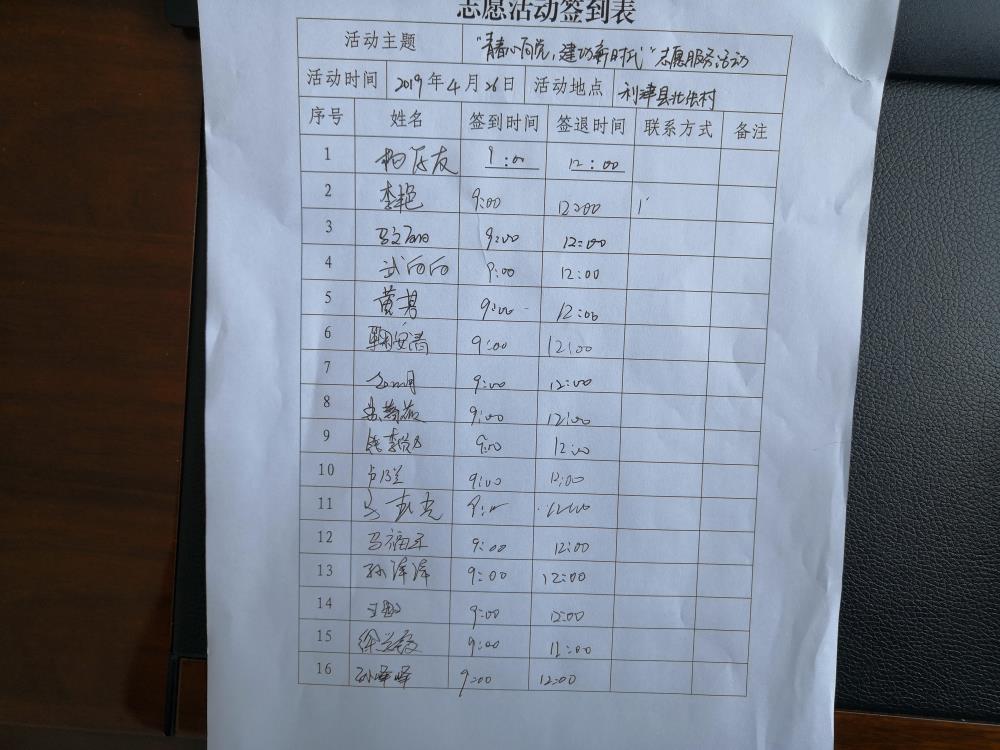 志愿活动签到表
活动主题 "青春心向党,建功新时代"志愿服务活动
活动时间 2019年4月26日 活动地点 利津县北张村
序号 姓名 签到时间 签退时间 联系方式 备注
1 9:00 12:00
2 李艳 9:00 12:00
3 9:00 12:00
4 武向向 9:00 12:00
5 黄勇 9:00 12:00
6 鞠安清 9:00 12:00
7 9:00 12:00
8 9:00 12:00
9 9:00 12:00
10 9:00 12:00
11 9:00 12:00
12 马福玉 9:00 12:00
13 孙泽泽 9:00 12:00
14 9:00 12:00
15 9:00 12:00
16 孙峰峰 9:00 12:00